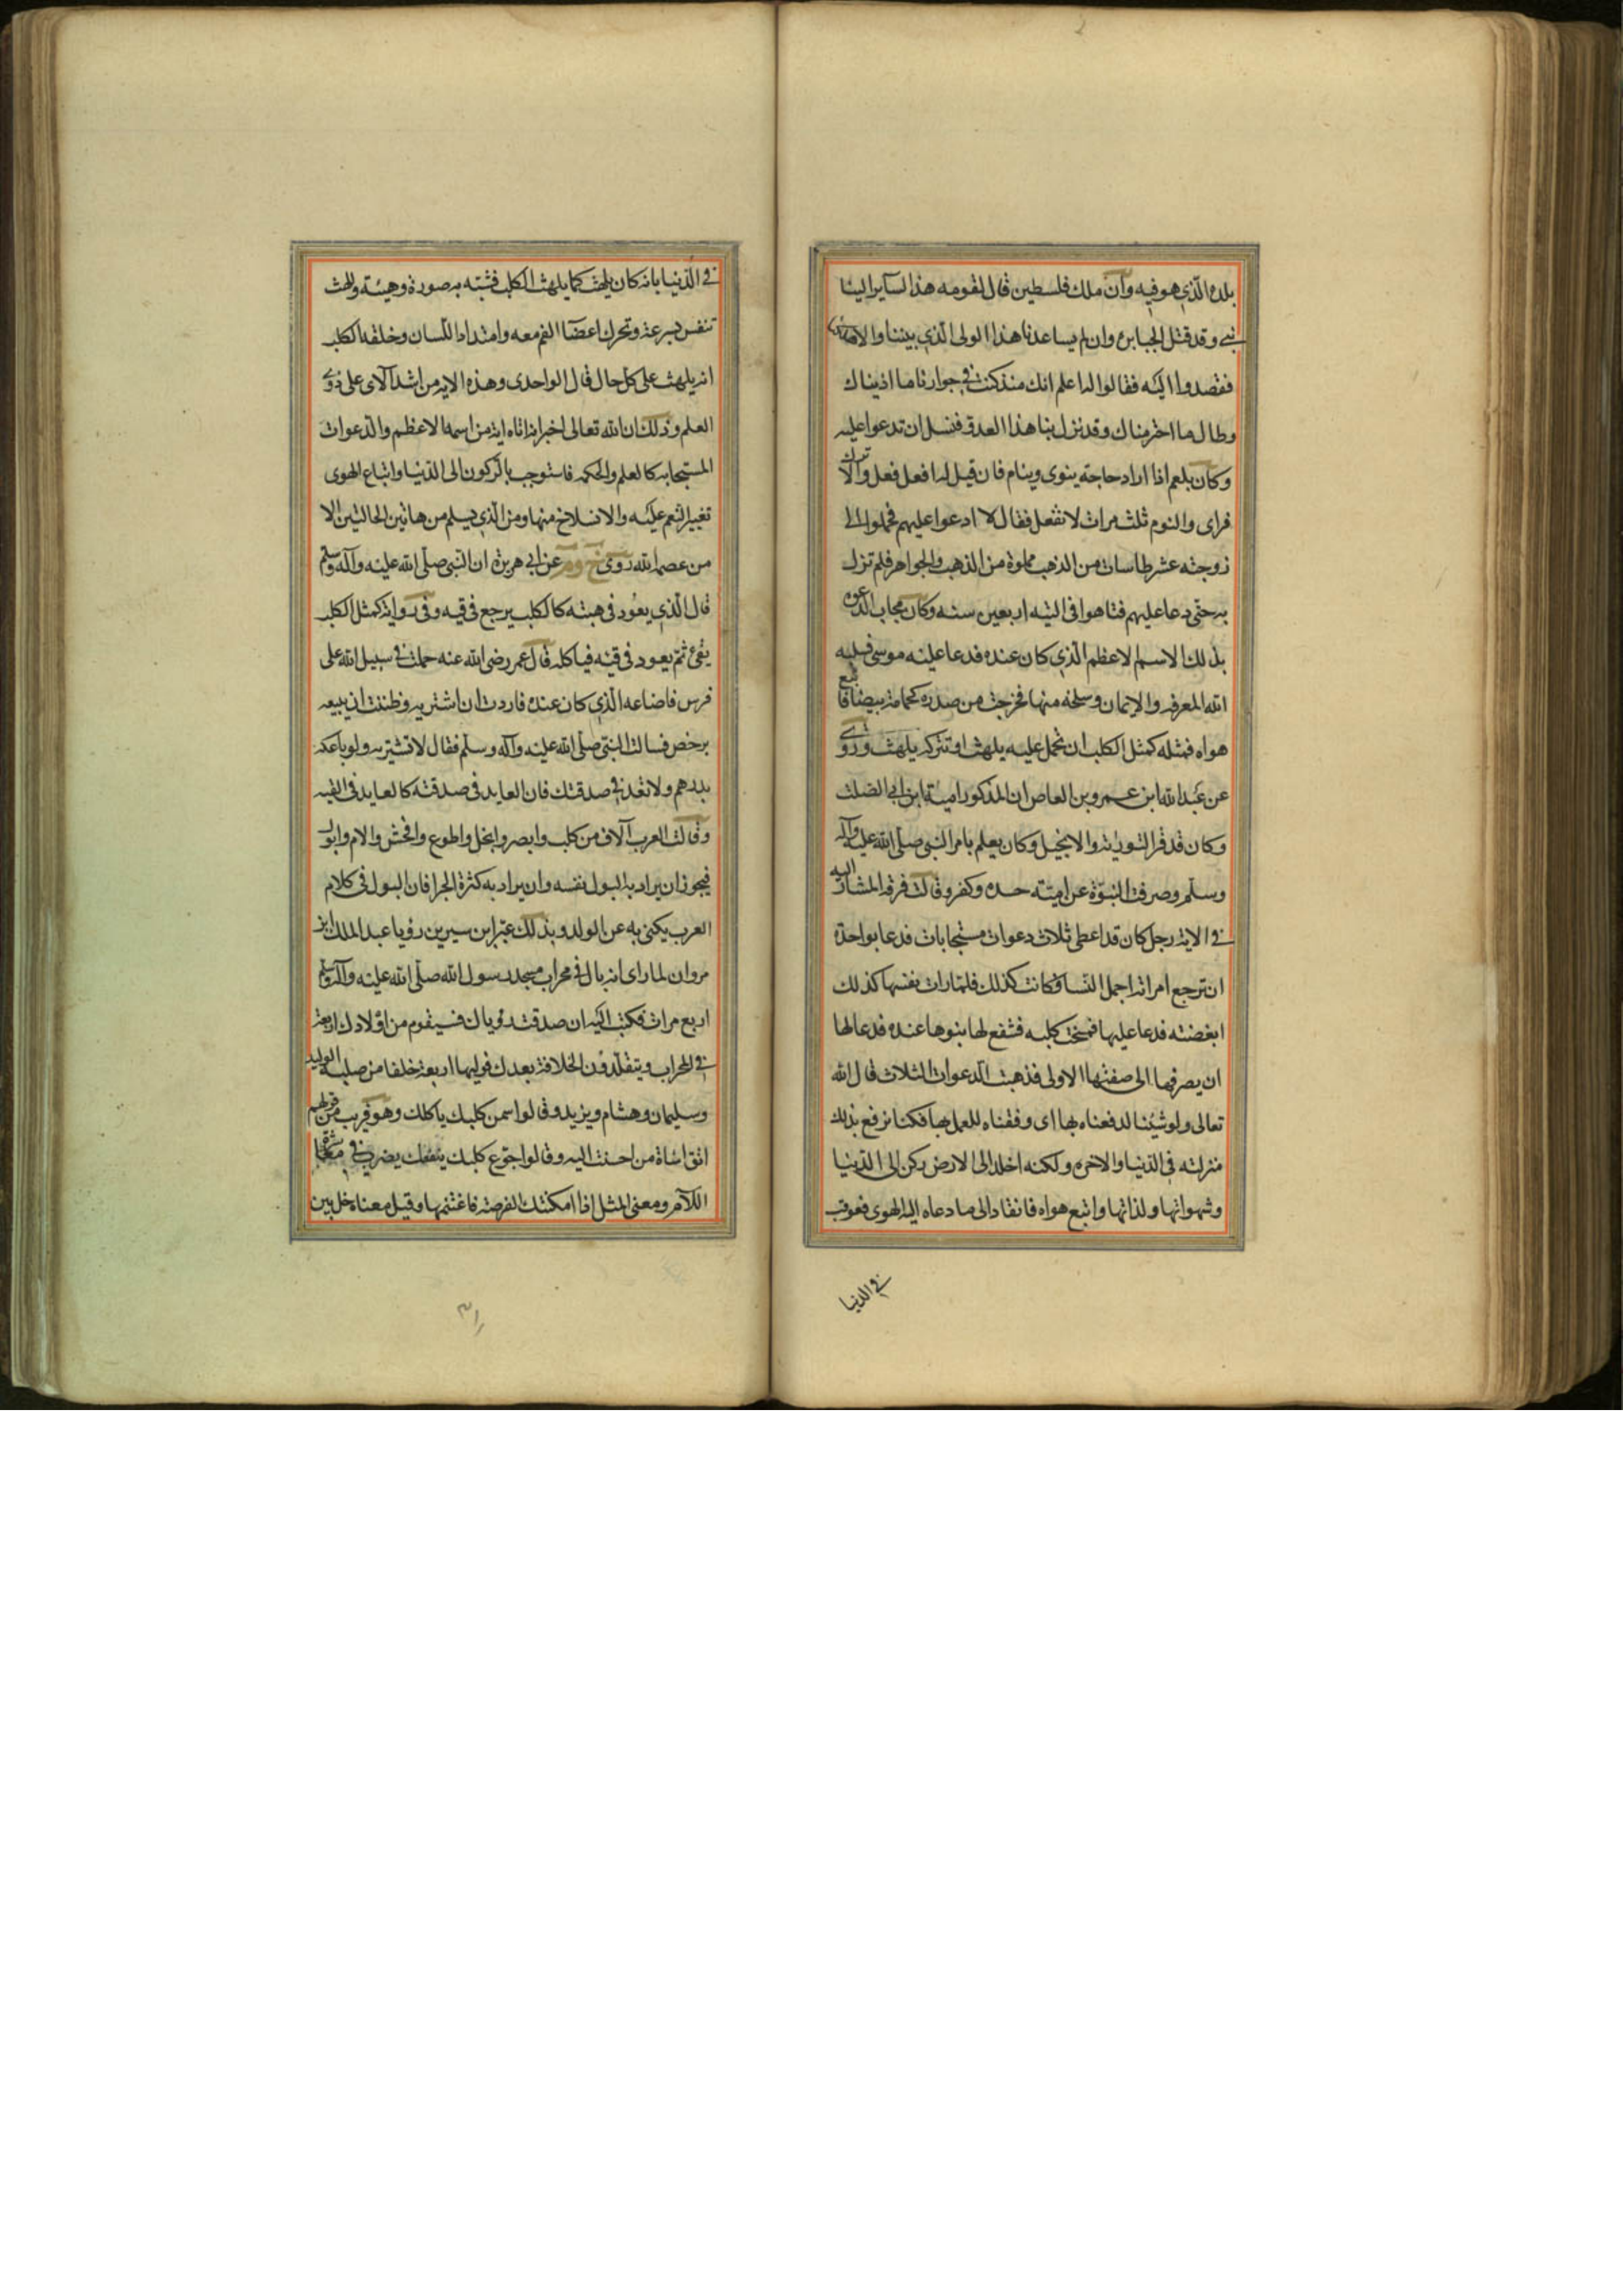 بلده الذي هو فيه وان ملك فلسطين قال لقومه هذا السآير الينا
نبي وقد قتل الجبابره وان لم يساعدنا هذا الولى الذي بيننا والا
فقصدوا اليه فقالوا له اعلم انك منذ كنت في جوارنا ما اذيناك
وطال ما احترمناك وقد نزل بنا هذا العدو فنسل ان تدعوا عليه
وكان بلعم اذا اراد حاجته ينوى وينام فان قيل له افعل فعل والا ترك
فراى والنوم ثلث مرات لا تفعل فقال لا ادعوا عليهم فحملوا الى
زوجته عشر طاسات من الذهب مملوة من الذهب والجواهر فلم تزل
به حتى دعا عليهم فتاهوا في التيه اربعين سنه وكان مجاب الدعوه
بذلك الاسم الاعظم الذي كان عنده فدعا عليه موسى فسلبه
الله المعرفه والايمان وسلخه منها فخرجت من صدره كحمامة بيضا فاتبع
هواه فمثله كمثل الكلب ان تحمل عليه يلهث او تتركه يلهث وروى
عن عبد الله ابن عمرو بن العاص ان المذكور امية ابن ابي الصلت
وكان قد قرا التورية والانجيل وكان يعلم بامر النبي صلى الله عليه وآله
وسلم وصرفت النبوة عن امية حسده وكفر وقالت فرقه المشار اليه
في الاية رجل كان قد اعطى ثلاث دعوات مستجابات فدعا بواحدة
ان ترجع امراته اجمل النسا فكانت كذلك فلما رات نفسها كذلك
ابغضته فدعا عليها فمسخت كلبه فشفع لها بنوها عنده فدعا لها
ان يصرفها الى صفتها الاولى فذهبت الدعوات الثلاث قال الله
تعالى ولو شيئنا لدفعناه بها اى وفقناه للعمل بها فكنا نرفع بذلك
منزلته في الدنيا والاخره ولكنه اخلد الى الارض ركن الى الدنيا
وشهواتها ولذاتها واتبع هواه فانقاد الى ما دعاه اليه الهوى فعوقب
في الدنيا
في الدنيا بانه كان يلهث كما يلهث الكلب فشبه به صورة وهيئة واللهث
تنفس بسرعة وتحرك اعضآ الفم معه وامتداد اللسان وخلقة الكلب
انه يلهث على كل حال قال الواحدى وهذه الايه من اشد الاى على ذوى
العلم وذلك ان الله تعالى اخبر انه اتاه اية من اسمه الاعظم والدعوات
المستجابه كالعلم والحكمه فاستوجب بالركون الى الدنيا واتباع الهوى
تغيير النعم عليه والانسلاخ منها ومن الذي يسلم من هاتين الحالتين الا
من عصمه الله روى خ وم عن ابي هريرة ان النبي صلى الله عليه وآله وسلم
قال الذي يعود في هبته كالكلب يرجع في قيه وفي رواية كمثل الكلب
يقئ ثم يعود في قيئه فياكله قال عمر رضى الله عنه حملت في سبيل الله على
فرس فاضاعه الذي كان عنده فاردت ان اشتريه وظننت انه يبيعه
برخص فسالت النبي صلى الله عليه وآله وسلم فقال لا تشتريه ولو باعكه
بدرهم ولا تعد في صدقتك فان العايد في صدقته كالعايد في القيه
وقالت العرب آلاف من كلب وابصر وابخل واطوع وافحش والام وابول
فيجوز ان يراد به البول نفسه وان يراد به كثرة الجرا فان البول في كلام
العرب يكنى به عن الولد وبذلك عبر ابن سيرين رؤيا عبد الملك ابن
مروان لما راى انه بال في محراب مسجد رسول الله صلى الله عليه وآله وسلم
اربع مرات فكتب اليه ان صدقت رؤياك فسيقوم من اولادك اربعة
في المحراب ويتقلدون الخلافة بعدك فوليها اربعة خلفا من صلبه الوليد
وسليمان وهشام ويزيد وقالوا سمن كلبك ياكلك وهو قريب من قولهم
اتق اساة من احسنت اليه وقالوا جوع كلبك يتبعك يضرب في
اللآم ومعنى المثل اذا امكنتك الفرصة فاغتنمها وقيل معناه خل بين